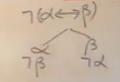 ¬(α↔β)
α β
¬β ¬α